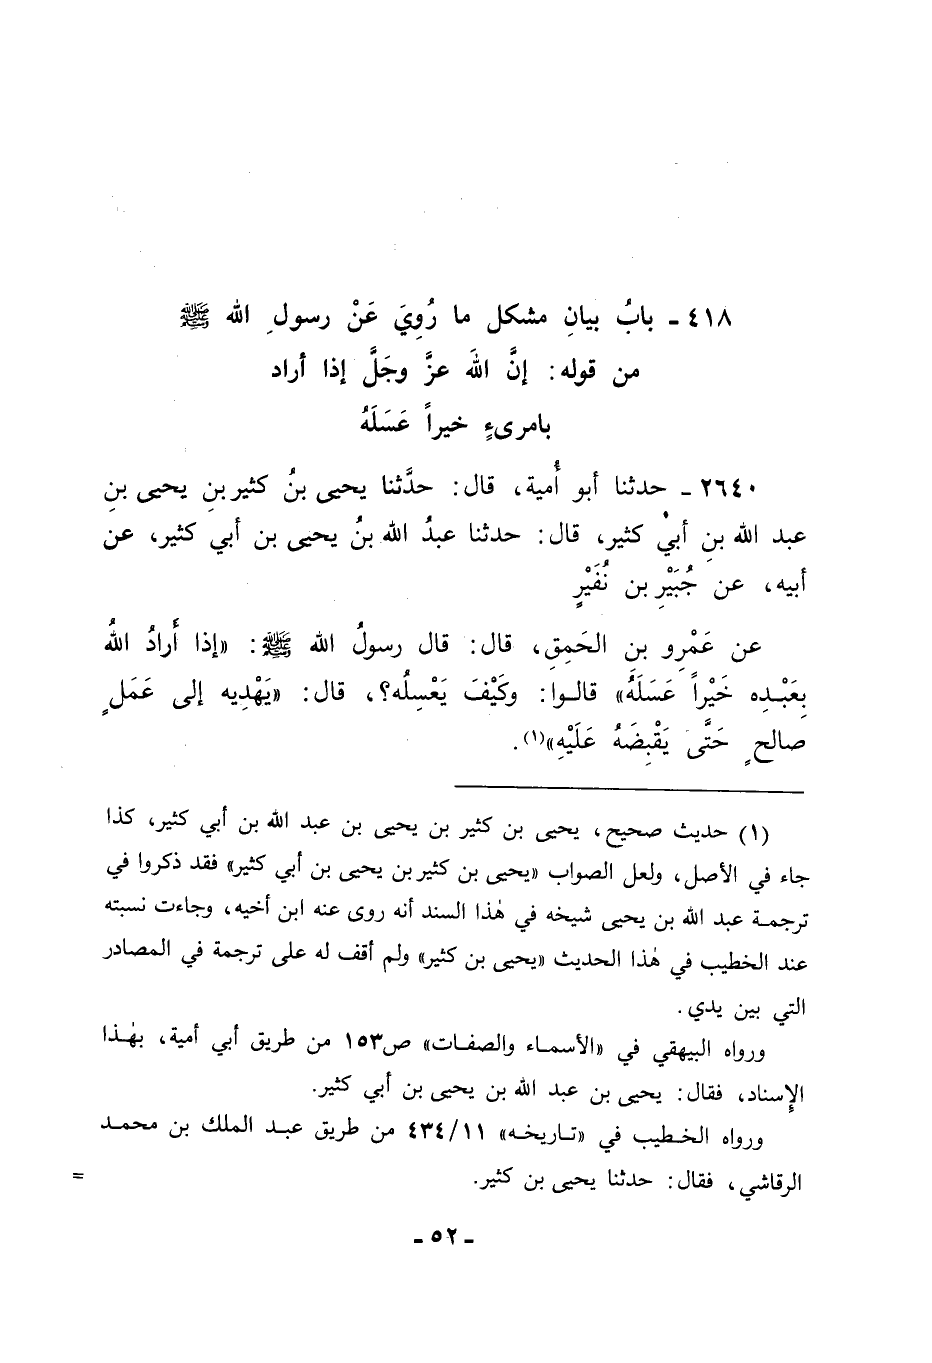 ٤١٨ - بابُ بيانِ مشكل ما رُوِيَ عَنْ رسولِ الله ﷺ
من قوله: إنَّ اللهَ عزَّ وجَلَّ إذا أراد
بامرىءٍ خيراً عَسَلَهُ
٢٦٤٠ - حدثنا أبو أُمية، قال: حدَّثنا يحيى بنُ كثيرِ بنِ يحيى بنِ
عبد الله بنِ أبي كثير، قال: حدثنا عبدُ الله بنُ يحيى بن أبي كثير، عن
أبيه، عن جُبَيْرِ بن نُفَيْرٍ
عن عَمْرِو بنِ الحَمِقِ، قال: قال رسولُ الله ﷺ: «إذا أَرادُ اللهُ
بِعَبْدِه خَيْراً عَسَلَهُ» قالوا: وكَيْفَ يَعْسِلُه؟، قال: «يَهْدِيه إلى عَمَلٍ
صالحٍ حَتَّى يَقْبِضَهُ عَلَيْهِ»(١).
(١) حديث صحيح، يحيى بن كثير بن يحيى بن عبد الله بن أبي كثير، كذا
جاء في الأصل، ولعل الصواب «يحيى بن كثير بن يحيى بن أبي كثير» فقد ذكروا في
ترجمة عبد الله بن يحيى شيخه في هٰذا السند أنه روى عنه ابن أخيه، وجاءت نسبته
عند الخطيب في هٰذا الحديث «يحيى بن كثير» ولم أقف له على ترجمة في المصادر
التي بين يدي.
ورواه البيهقي في «الأسماء والصفات» ص١٥٣ من طريق أبي أمية، بهٰذا
الإِسناد، فقال: يحيى بن عبد الله بن يحيى بن أبي كثير.
ورواه الخطيب في «تاريخه» ٤٣٤/١١ من طريق عبد الملك بن محمد
الرقاشي، فقال: حدثنا يحيى بن كثير. =
- ٥٢ -